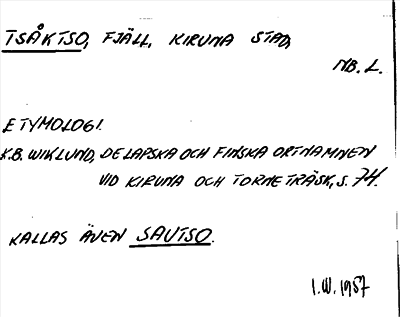 TSÅKTSO, FJÄLL, KIRUNA STAD,
NB. L.
ETYMOLOGI.
K.B. WIKLUND, DE LAPSKA OCH FINSKA ORTNAMNEN
VID KIRUNA OCH TORNETRÄSK, S. 74.
KALLAS ÄVEN SAUTSO.
I.W. 1957